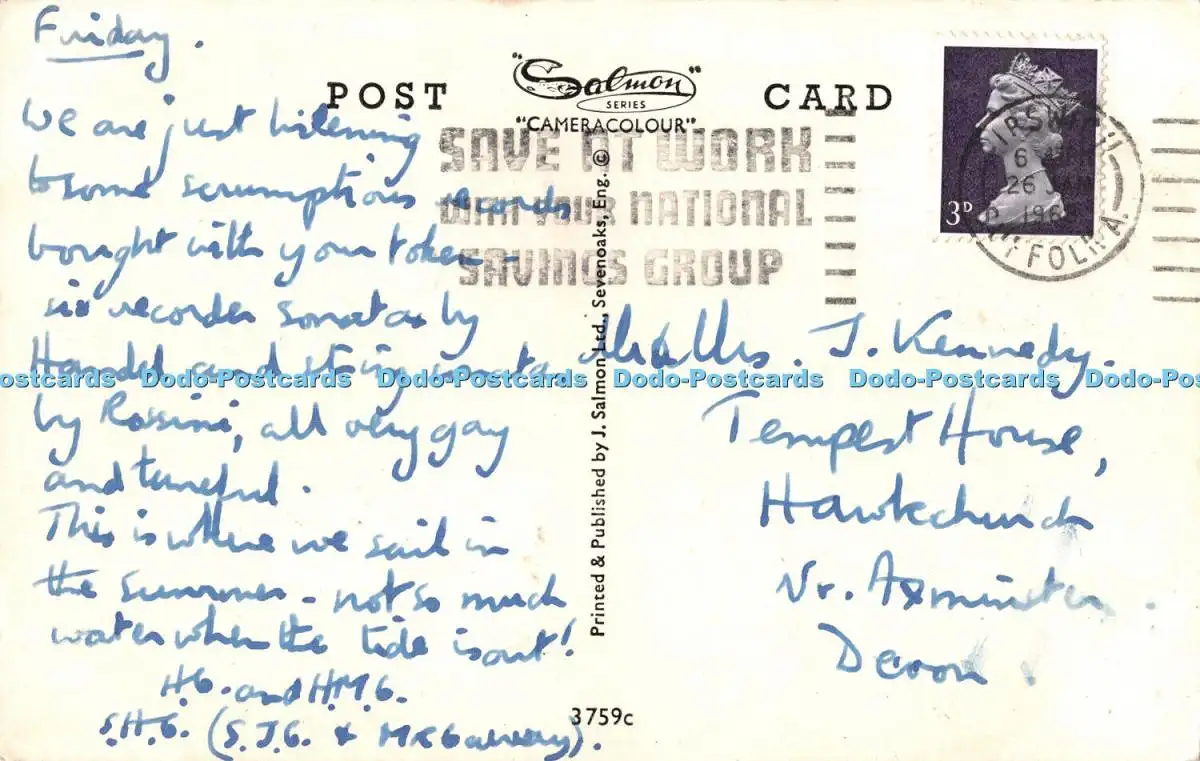 Friday.
We are just listening
to some scrumptious records
bought with your token -
six recorder sonatas by
Handel and string sonatas
by Rossini, all very gay
and tuneful.
This is where we sail in
the summer - not so much
water when the tide is out!
H.G. and H.M.G.
S.H.G. (S.J.G. &
POST CARD
"Salmon"
SERIES
"CAMERACOLOUR"
SAVE AT WORK
WITH YOUR NATIONAL
SAVINGS GROUP
3D
6
26
196
Printed & Published by J. Salmon Ltd., Sevenoaks, Eng. ©
Mrs. J. Kennedy.
Tempest House,
Hawkchurch
Nr. Axminster.
Devon.
3759c
Dodo-Postcards Dodo-Postcards Dodo-Postcards Dodo-Postcards Dodo-Postcards